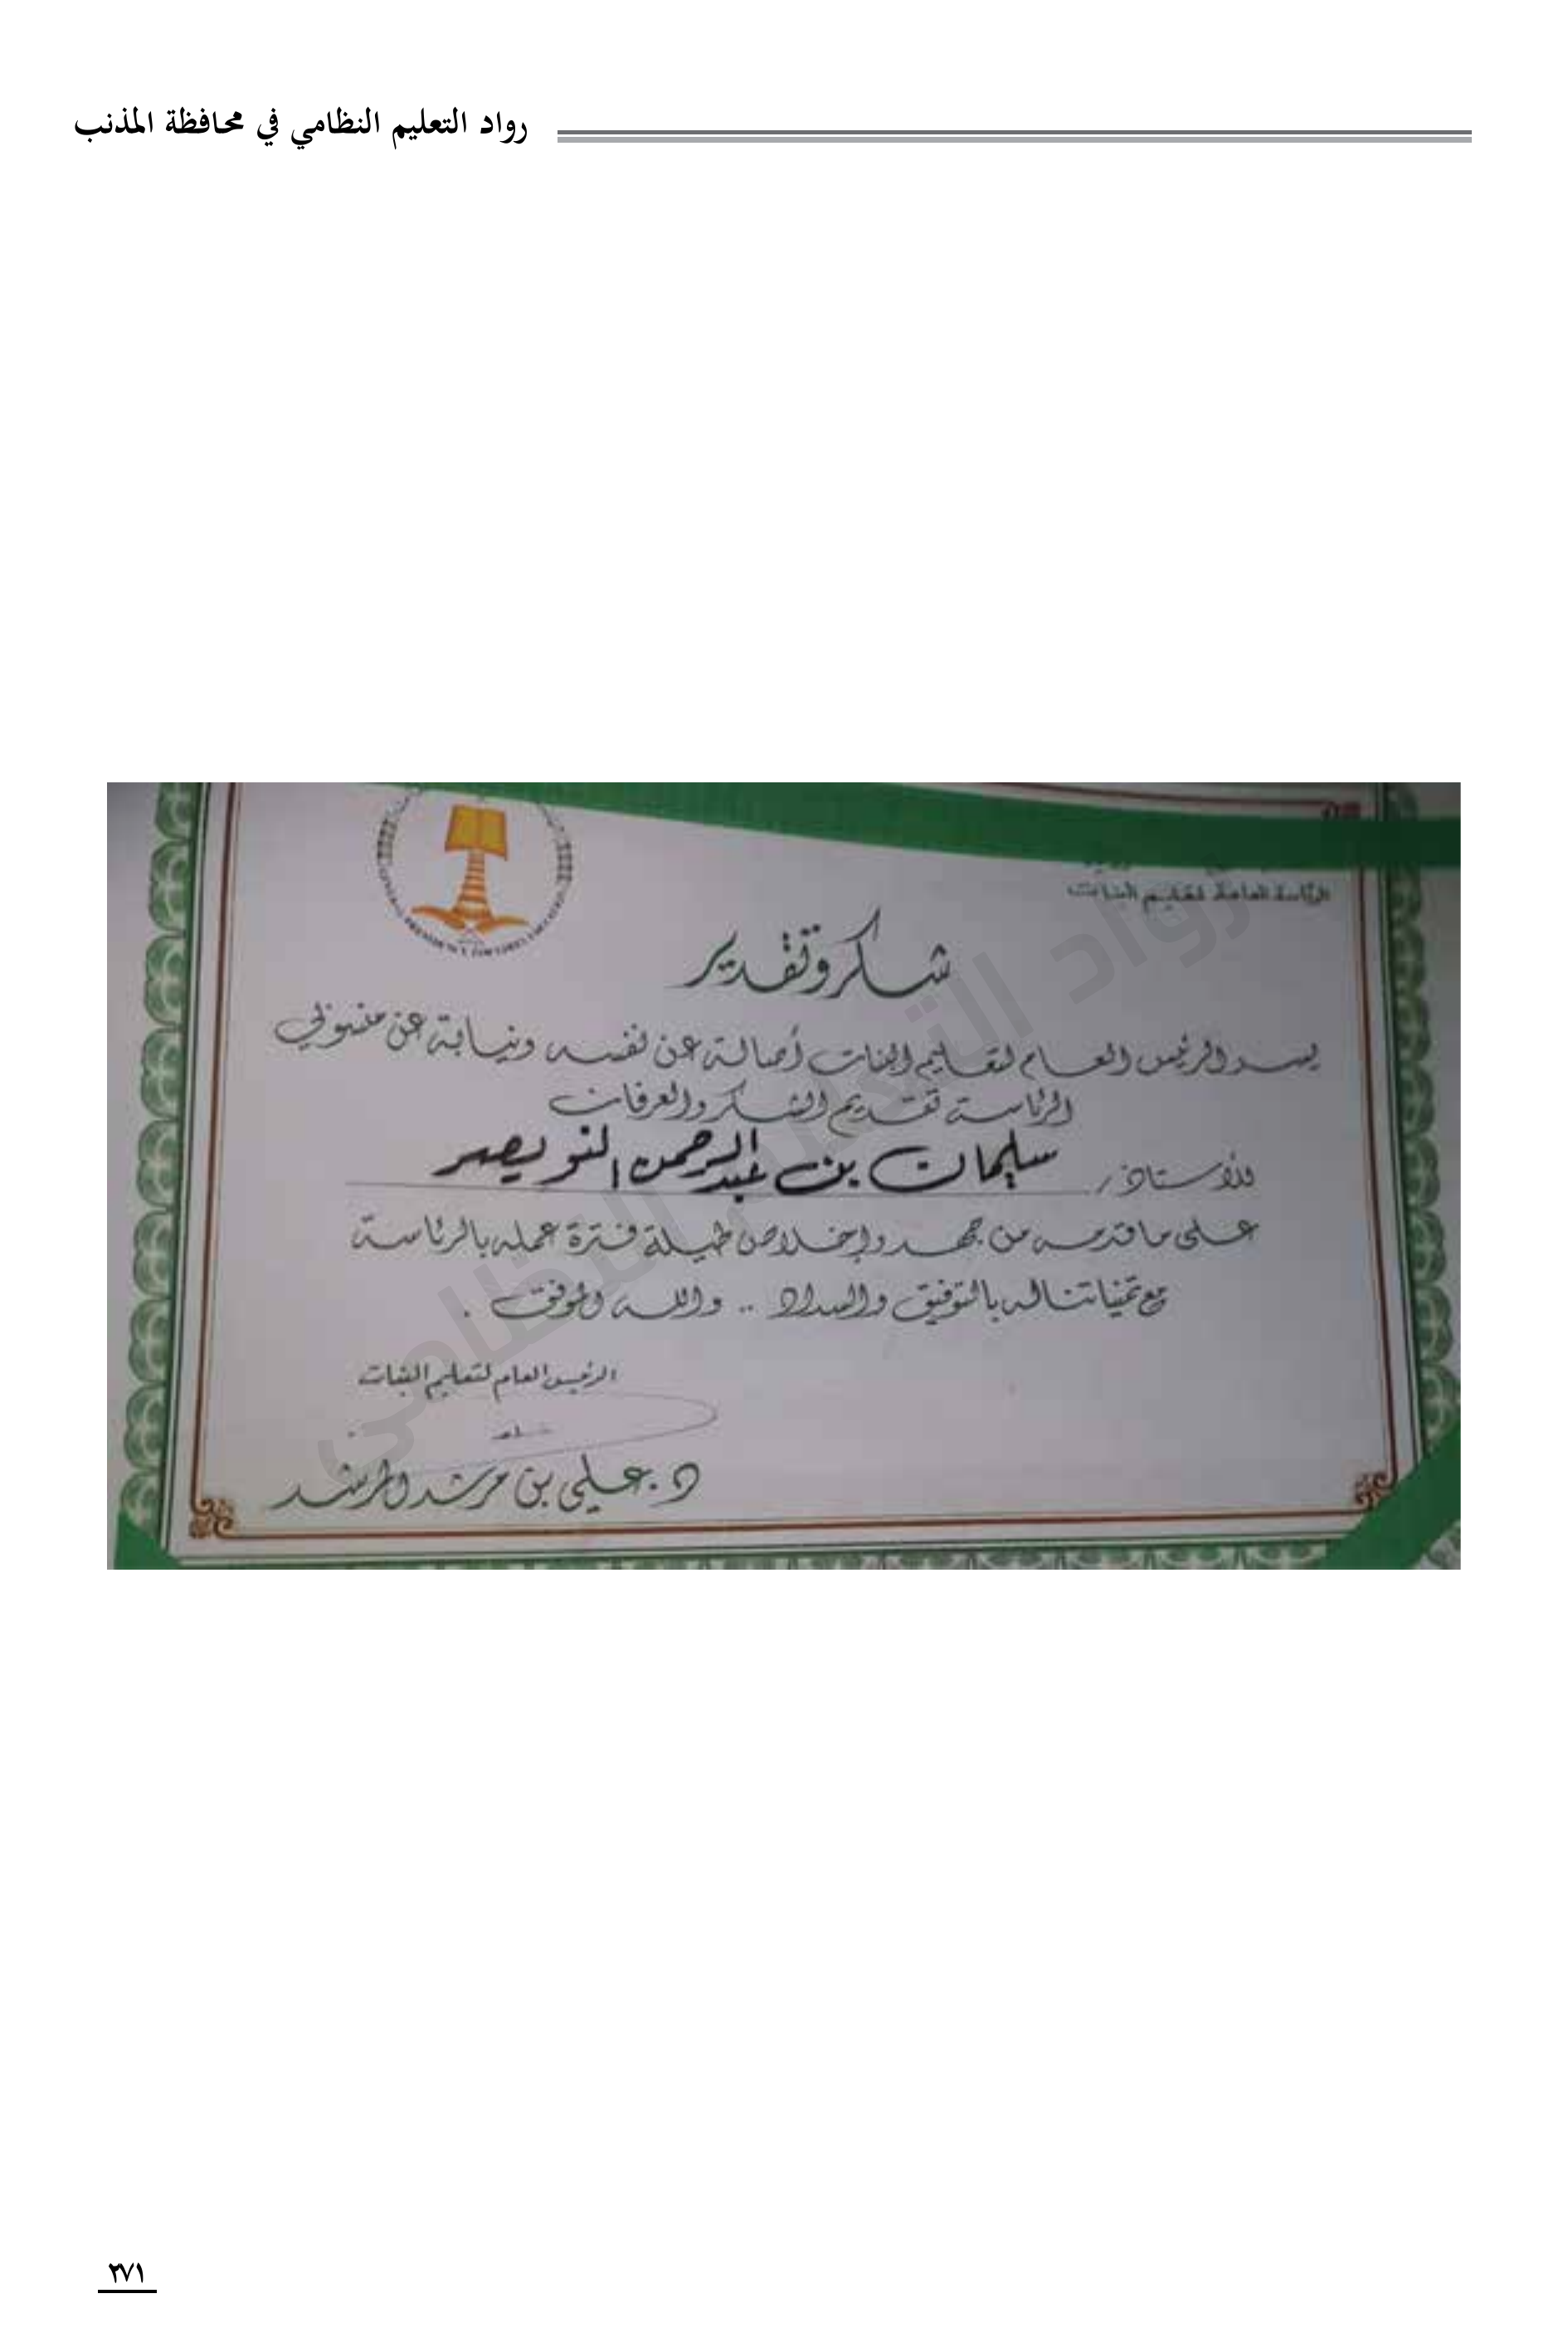 رواد التعليم النظامي في محافظة المذنب
الرئاسة العامة لتعليم البنات
شكر وتقدير
يسر الرئيس العام لتعليم البنات أصالة عن نفسه ونيابة عن منسوبي
الرئاسة تقديم الشكر والعرفان
للأستاذ / سليمان بن عبدالرحمن النويصر
على ما قدمه من جهد وإخلاص طيلة فترة عمله بالرئاسة
مع تمنياتنا له بالتوفيق والسداد .. والله الموفق .
الرئيس العام لتعليم البنات
د. علي بن مرشد المرشد
رواد التعليم النظامي
٢٧١